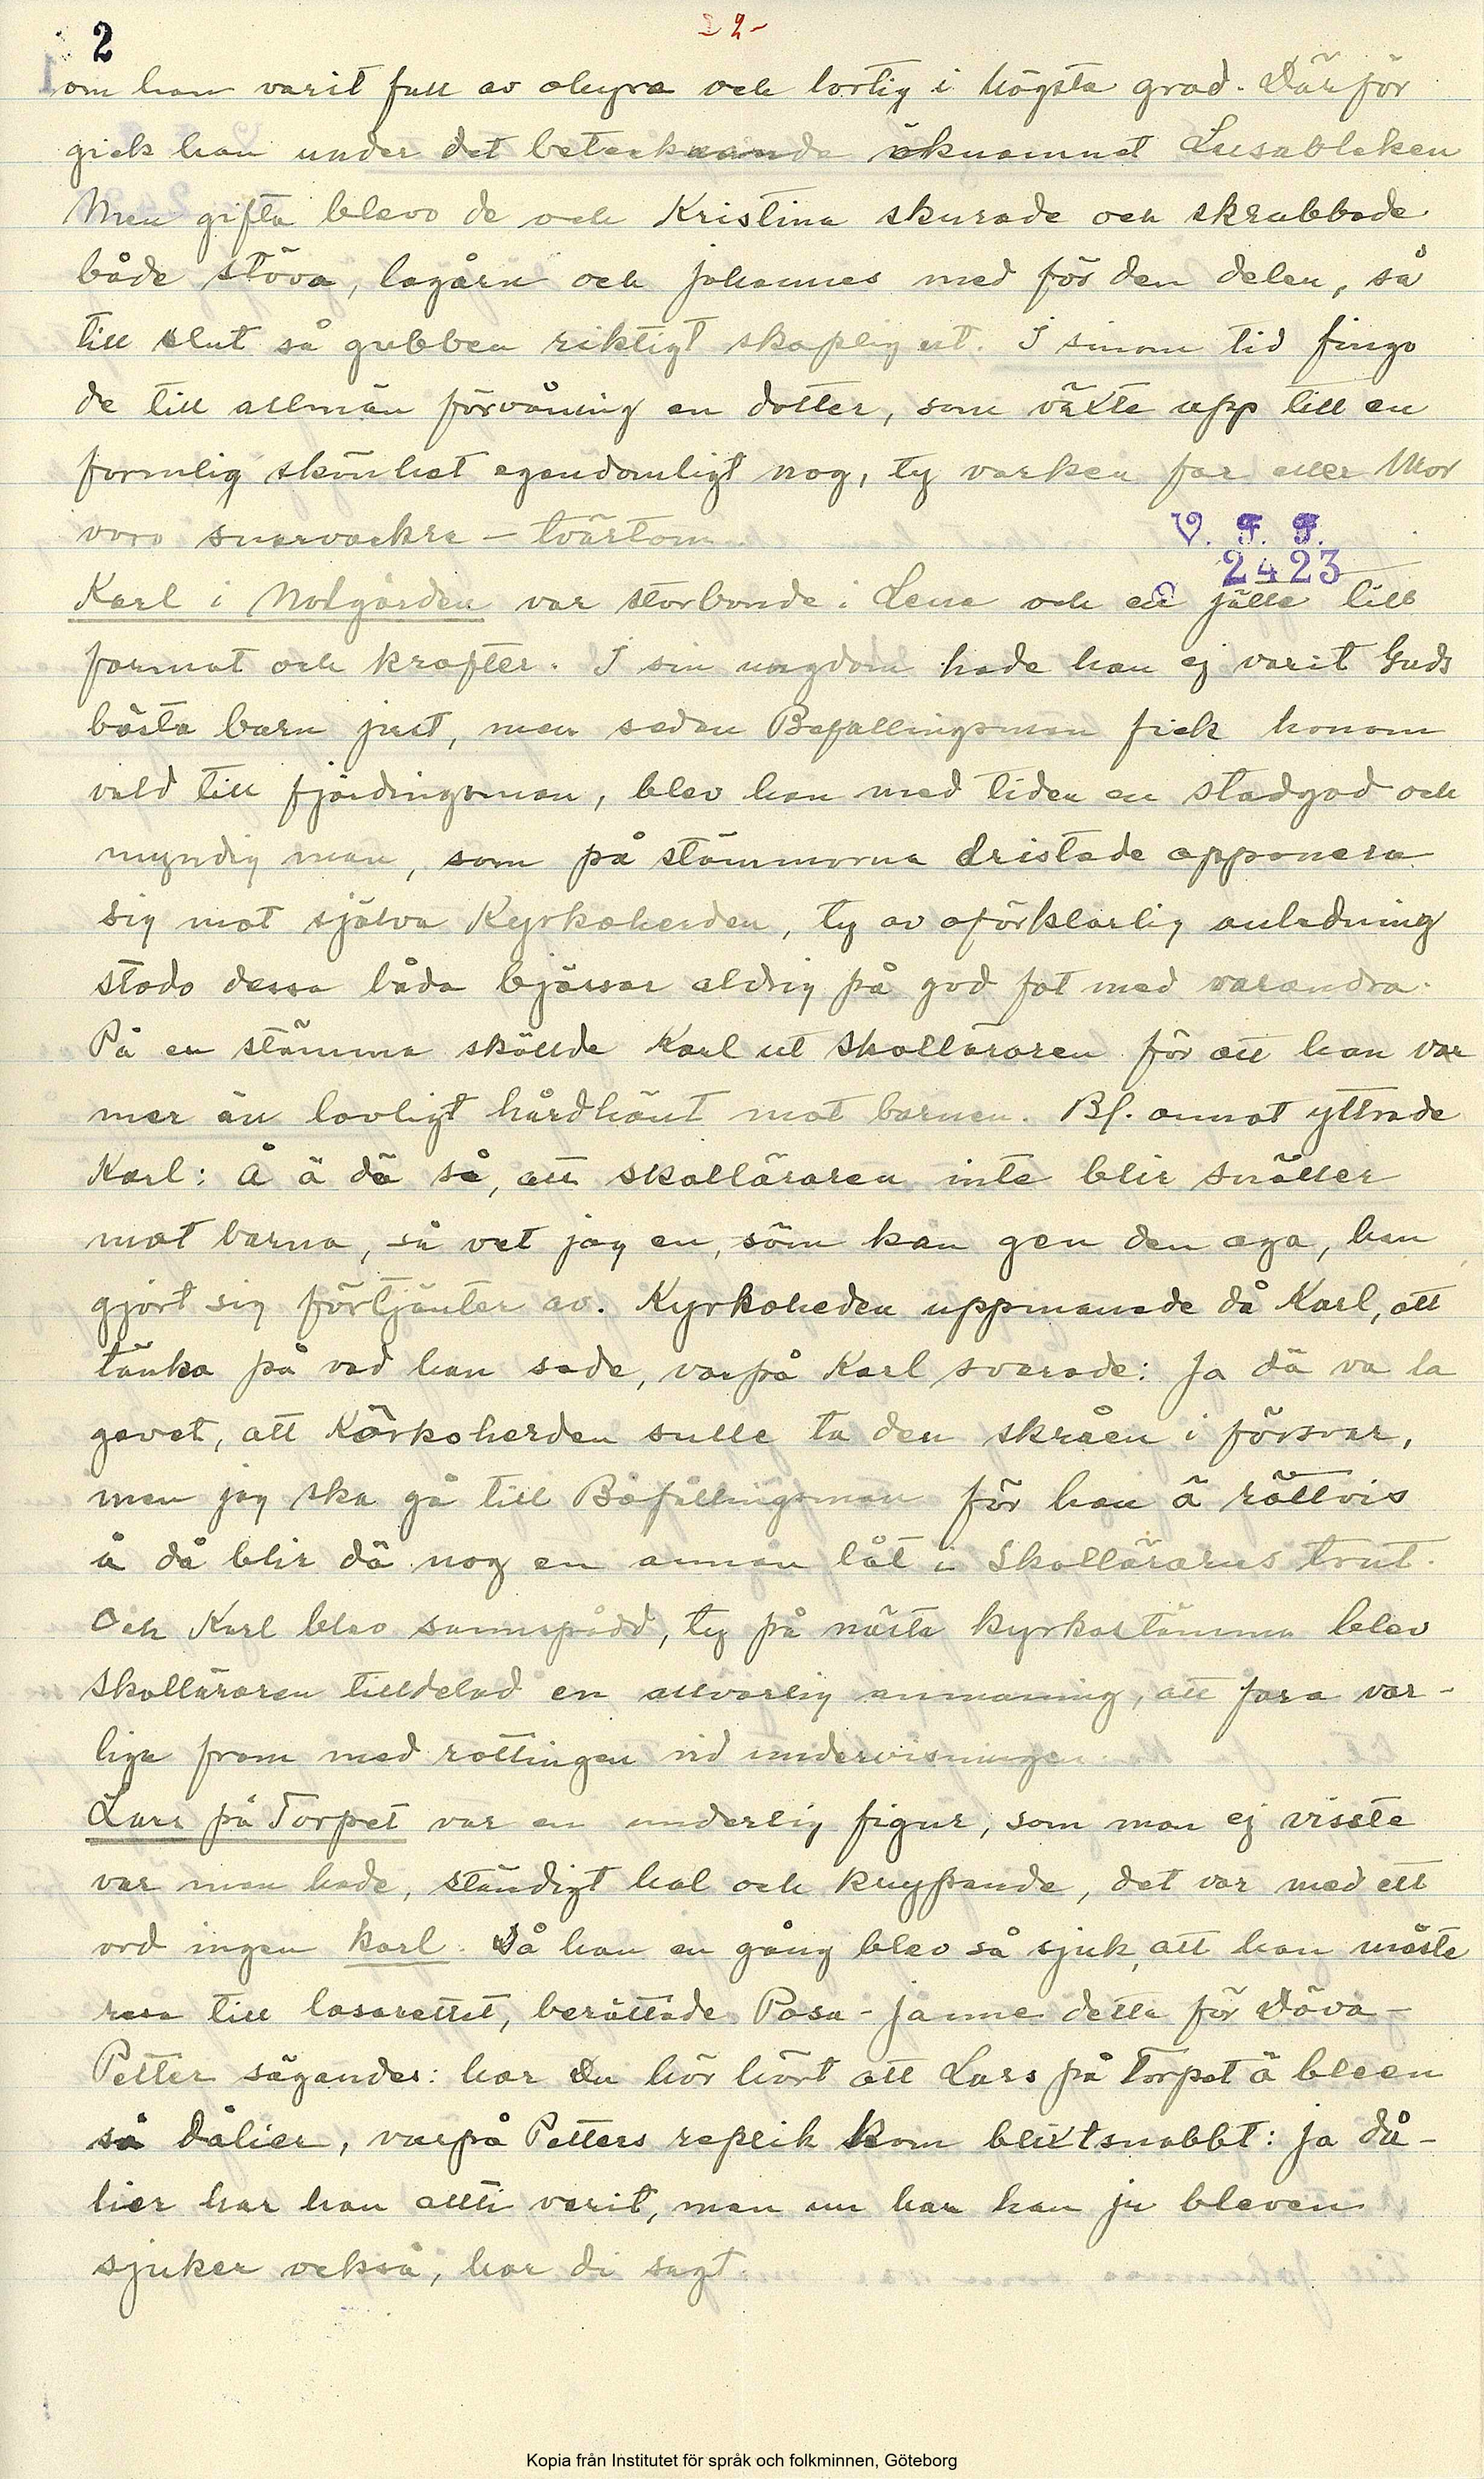 2
- 2 -
om han varit full av ohyra och lortig i högsta grad. Därför
gick han under det betecknande öknamnet Lusableken
Men gifta blevo de och Kristina skurade och skrubbade
både stöva, lagårn och Johannes med för den delen, så
till slut så gubben riktigt skaplig ut. I sinom tid fingo
de till allmän förvåning en dotter, som växte upp till en
formlig skönhet egendomligt nog, ty varken far eller Mor
voro snarvackra – tvärtom.
V. F. F.
2423
Karl i Nolgården var storbonde i Lena och en jätte till
format och krafter. I sin ungdom hade han ej varit Guds
bästa barn just, men sedan Befallingsman fick honom
vald till fjärdingsman, blev han med tiden en stadgad och
myndig man, som på stämmorna dristade opponera
sig mot själva Kyrkoherden, ty av oförklarlig anledning
stodo dessa båda bjässar aldrig på god fot med varandra.
På en stämma skällde Karl ut Skolläraren för att han var
mer än lovligt hårdhänt mot barnen. Bl. annat yttrade
Karl: Å ä dä så, att skolläraren inte blir snäller
mot barna, så vet jag en, söm kan gen den aga, han
gjort sig förtjänter av. Kyrkoheden uppmanade då Karl, att
tänka på vad han sade, varpå Karl svarade: Ja dä va la
gevet, att Körkoherden sulle ta den skråen i försvar,
men jag ska gå till Båfållingsman för han ä rättvis
å då blir dä nog en annan låt i Skollärarns trut.
Och Karl blev sannspådd, ty på nästa kyrkostämma blev
skolläraren tilldelad en allvarlig anmaning, att fara var-
liga fram med rottingen vid undervisningen.
Lars på Torpet var en underlig figur, som man ej visste
var man hade, ständigt hal och krypande, det var med ett
ord ingen karl. Då han en gång blev så sjuk, att han måste
resa till lasarettet, berättade Posa-Janne detta för Döva-
Petter sägandes: har Du hör hört att Lars på Torpet ä bleen
så dålier, varpå Petters replik kom blixtsnabbt: Ja då-
lier har han allti varit, men nu har han ju bleven
sjuker också, har di sagt.
Kopia från Institutet för språk och folkminnen, Göteborg